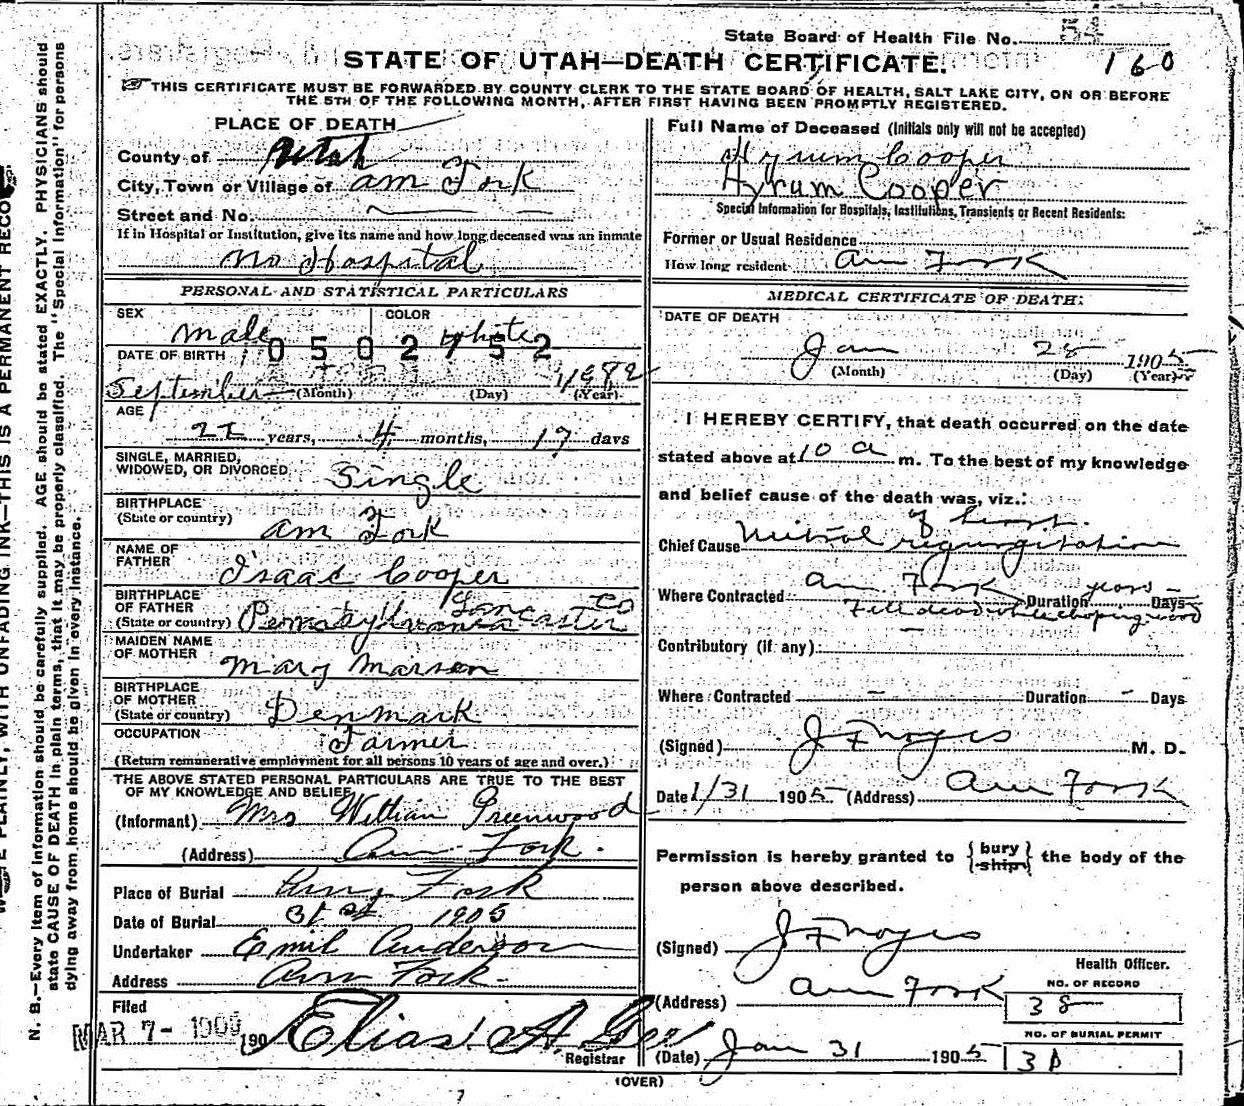 State Board of Health File No. 54
STATE OF UTAH—DEATH CERTIFICATE.
160
THIS CERTIFICATE MUST BE FORWARDED BY COUNTY CLERK TO THE STATE BOARD OF HEALTH, SALT LAKE CITY, ON OR BEFORE
THE 5TH OF THE FOLLOWING MONTH, AFTER FIRST HAVING BEEN PROMPTLY REGISTERED.
PLACE OF DEATH
County of Utah
City, Town or Village of Am Fork
Street and No.
If in Hospital or Institution, give its name and how long deceased was an inmate
No Hospital
PERSONAL AND STATISTICAL PARTICULARS
SEX Male
COLOR White
0502752
DATE OF BIRTH
September (Month) (Day) 1882 (Year)
AGE
22 years, 4 months, 17 days
SINGLE, MARRIED,
WIDOWED, OR DIVORCED Single
BIRTHPLACE
(State or country) Am Fork
NAME OF
FATHER Isaac Cooper
BIRTHPLACE
OF FATHER Lancaster Co
(State or country) Pennsylvania
MAIDEN NAME
OF MOTHER Mary Marsen
BIRTHPLACE
OF MOTHER
(State or country) Denmark
OCCUPATION Farmer
(Return remunerative employment for all persons 10 years of age and over.)
THE ABOVE STATED PERSONAL PARTICULARS ARE TRUE TO THE BEST
OF MY KNOWLEDGE AND BELIEF
(Informant) Mrs William Greenwood
(Address) Am Fork.
Place of Burial Am Fork
Date of Burial 31st 1905
Undertaker Emil Anderson
Address Am Fork
Filed
MAR 7- 1905 190
Elias A. Gee
Registrar
Full Name of Deceased (Initials only will not be accepted)
Hyrum Cooper
Hyrum Cooper
Special Information for Hospitals, Institutions, Transients or Recent Residents:
Former or Usual Residence
How long resident Am Fork
MEDICAL CERTIFICATE OF DEATH.
DATE OF DEATH
Jan 28 1905
(Month) (Day) (Year)
I HEREBY CERTIFY, that death occurred on the date
stated above at 10 a m. To the best of my knowledge
and belief cause of the death was, viz.:
of heart.
Chief Cause Mitral regurgitation
Where Contracted Am Fork Duration years Days
Fell dead while choping wood
Contributory (if any)
Where Contracted — Duration - Days
(Signed) J F Noyes M. D.
Date 1/31 1905 (Address) Am Fork
Permission is hereby granted to {bury ship} the body of the
person above described.
(Signed) J F Noyes
Health Officer.
(Address) Am Fork
NO. OF RECORD
38
NO. OF BURIAL PERMIT
(Date) Jan 31 1905
(OVER)
N. B.—Every item of information should be carefully supplied. AGE should be stated EXACTLY. PHYSICIANS should
state CAUSE OF DEATH in plain terms, that it may be properly classified. The "Special Information" for persons
dying away from home should be given in every instance.
PLAINLY, WITH UNFADING INK—THIS IS A PERMANENT RECO